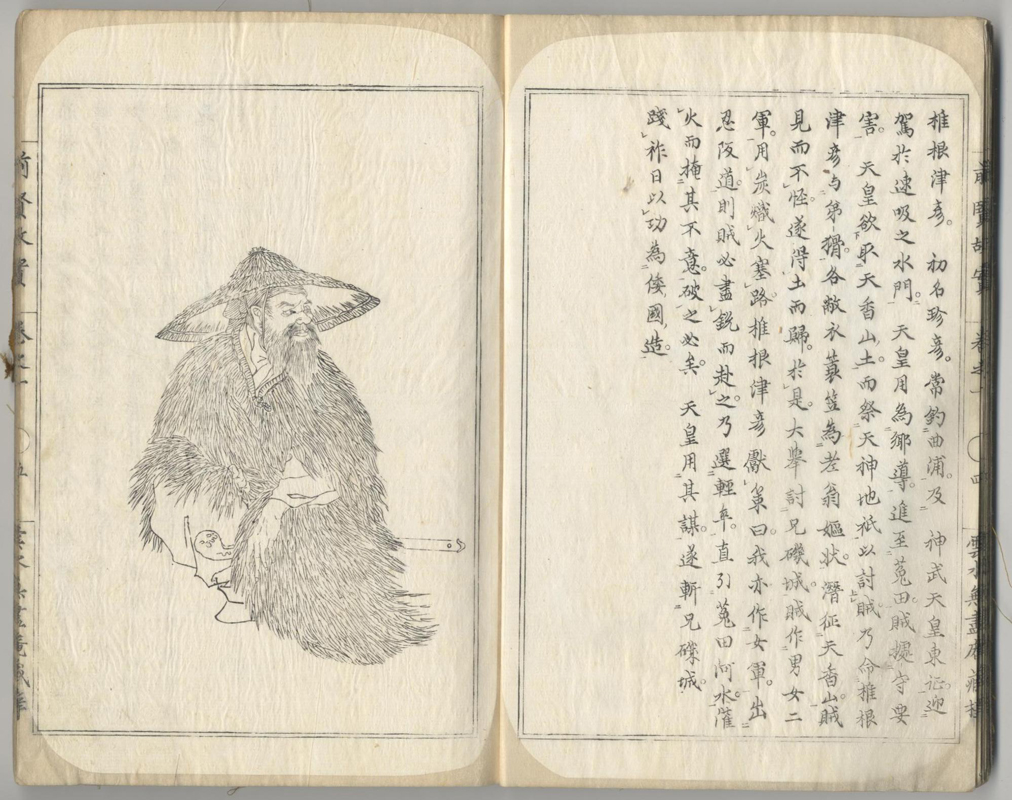 椎根津彦。 初名珍彦。常釣曲浦。及 神武天皇東征。迎
駕於速吸之水門。 天皇用為郷導。進至菟田。賊擾守要
害。 天皇欲取天香山土而祭天神地祇以討賊。乃命椎根
津彦与弟猾。各敝衣蓑笠為老翁嫗状。潛征天香山。賊
見而不怪。遂得土而歸。於是大擧討兄磯城。賊作男女二
軍。用炭熾火塞路。椎根津彦獻策曰。我亦作女軍。出
忍阪道。則賊必盡鋭而赴之。乃選輕卒。直引菟田河水。灌
火而掩其不意。破之必矣。 天皇用其謀。遂斬兄磯城。
踐祚日以功為倭國造。
前賢故實 巻之一 ○四
前賢故實 巻之一 ○五